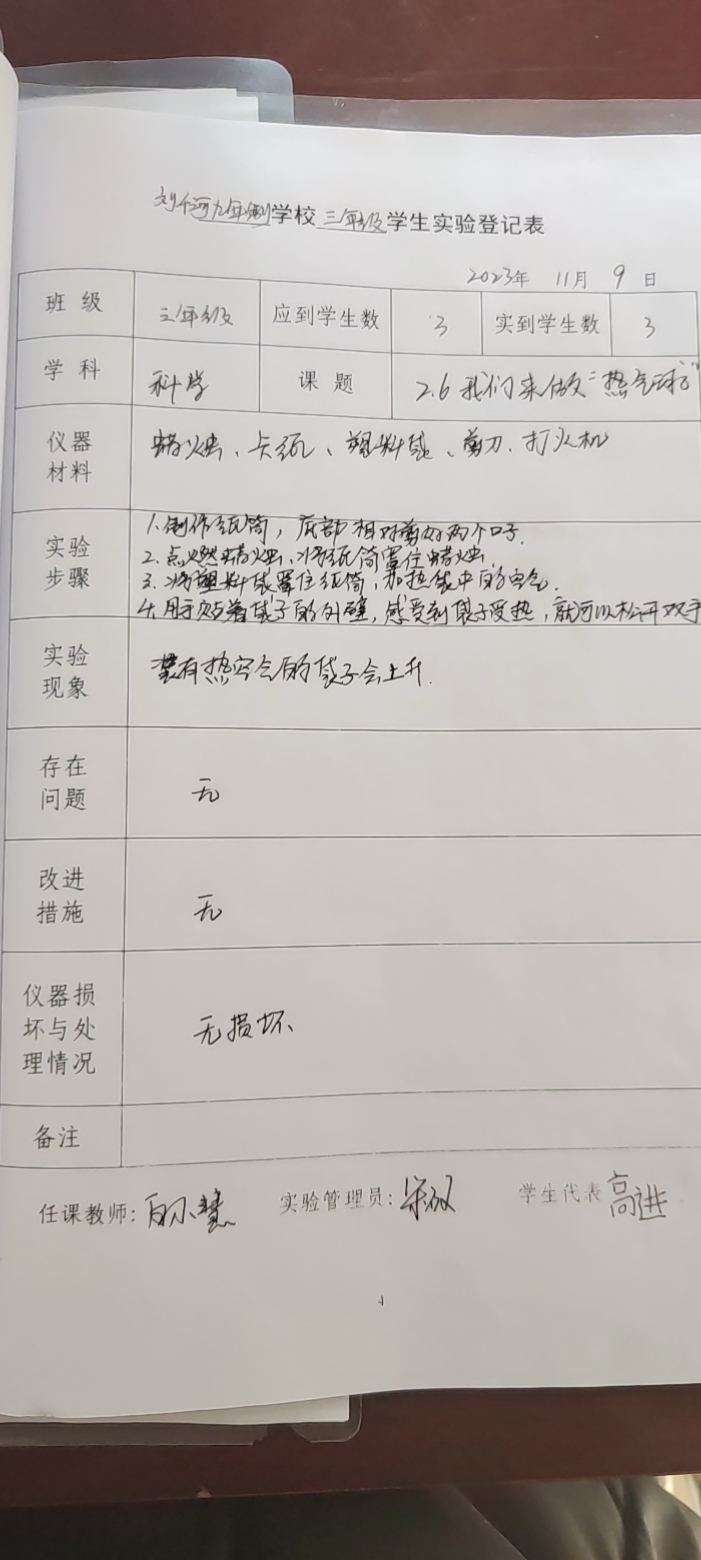 刘河九年制学校三年级学生实验登记表
2023年 11月 9日
班级 三年级 应到学生数 3 实到学生数 3
学科 科学 课题 2.6我们来做“热气球”
仪器材料 蜡烛、卡纸、塑料袋、剪刀、打火机
实验步骤
1.制作纸筒，底部相对剪好两个口子.
2.点燃蜡烛、将纸筒罩住蜡烛.
3.将塑料袋罩住纸筒，加热袋中的空气.
4.用手贴着袋子的外壁，感受到袋子受热，就可以松开双手
实验现象 装有热空气的袋子会上升.
存在问题 无
改进措施 无
仪器损坏与处理情况 无损坏
备注
任课教师：白小慧 实验管理员： 学生代表 高进
4